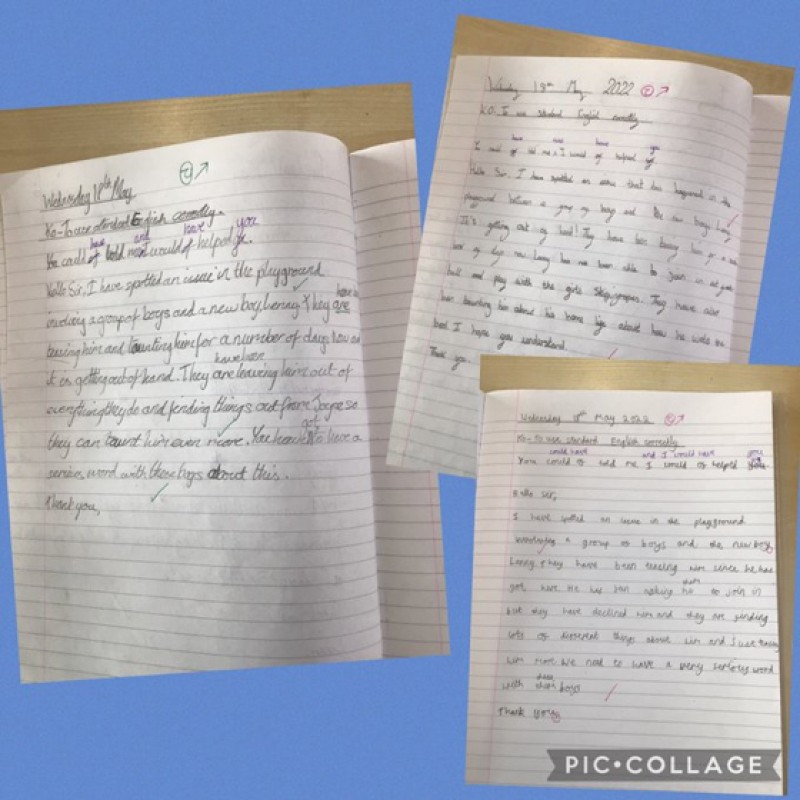 Wednesday 18th May
Ko-To use standard English correctly.
have and have you
You could of told me I would of helped ye.
Hello Sir, I have spotted an issue in the playground
involving a group of boys and a new boy, Lenny. They are
teasing him and taunting him for a number of days now and
have been
it is getting out of hand. They are leaving him out of
everything they do and finding things out from so
got
they can taunt him even more. You have to have a
serious word with these boys about this.
Thank you,
Wednesday 18th May 2022
K.O. To use standard English correctly
have and have you
I could of told me I would of helped
Hello Sir, I have spotted an issue that has happened in the
playground between a group of boys and the new boy Lenny
It's getting out of hand! They have been teasing him for a
of days now Lenny has not been able to join in
and play with the girls. They have also
been taunting him about his home life about how he
I hope you understand.
Thank you.
Wednesday 18th May 2022
Ko-To use standard English correctly
could have and I would have you
You could of told me I would of helped you.
Hello Sir,
I have spotted an issue in the playground
involving a group of boys and the new boy,
Lenny. They have been teasing him since he has
got here. He has been asking to join in
but they have declined him and they are finding
lots of different things about him and just teasing
him more. We need to have a very serious word
these
with boys
Thank you,
PIC•COLLAGE